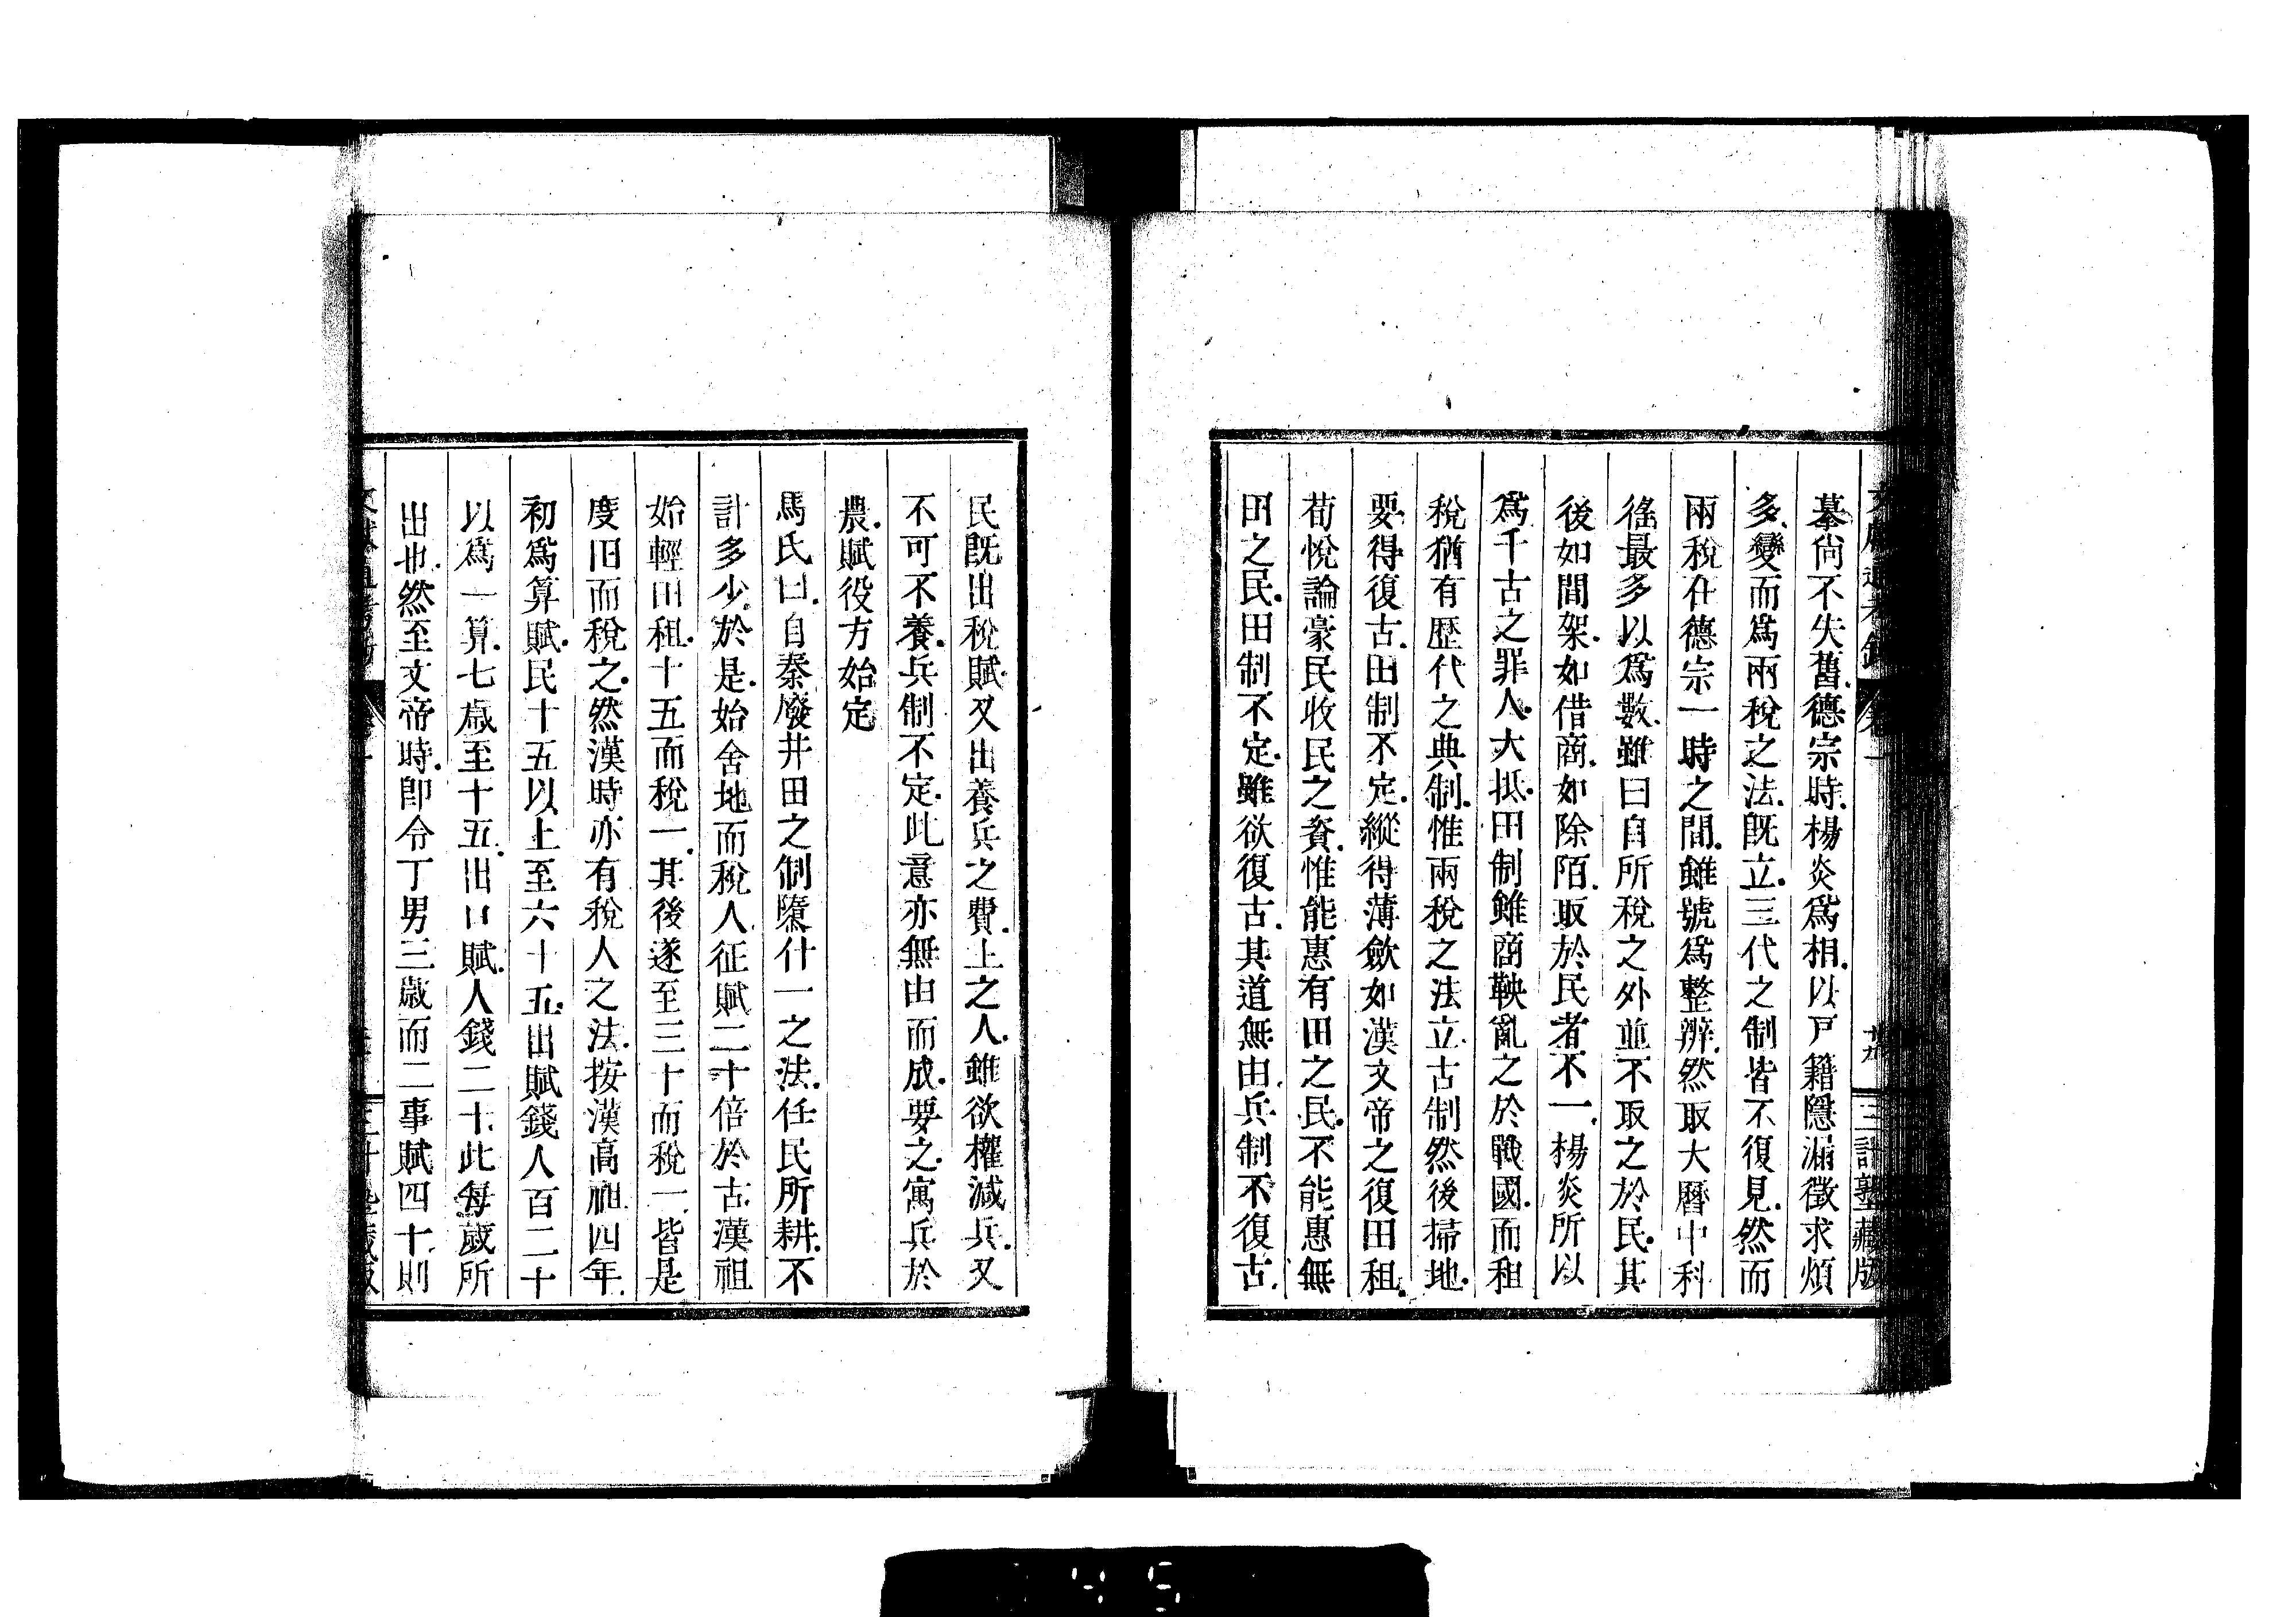 摹尙不失舊德宗時楊炎爲相以戸籍隱漏徵求煩
多變而爲兩稅之法既立三代之制皆不復見然而
兩稅在德宗一時之間雖號爲整辨然取大曆中科
徭最多以爲數雖曰自所稅之外並不取之於民其
後如間架如借商如除陌取於民者不一楊炎所以
爲千古之罪人大抵田制雖商鞅亂之於戰國而租
稅猶有歷代之典制惟兩稅之法立古制然後掃地
要得復古田制不定縱得薄斂如漢文帝之復田租
荀悅論豪民收民之資惟能惠有田之民不能惠無
田之民田制不定雖欲復古其道無由兵制不復古
民既出稅賦又出養兵之費上之人雖欲權減兵又
不可不養兵制不定此意亦無由而成要之寓兵於
農賦役方始定
馬氏曰自秦廢井田之制隳什一之法任民所耕不
計多少於是始舍地而稅人征賦二十倍於古漢祖
始輕田租十五而稅一其後遂至三十而稅一皆是
度田而稅之然漢時亦有稅人之法按漢高祖四年
初爲算賦民十五以上至六十五出賦錢人百二十
以爲一算七歲至十五出口賦人錢二十此每歲所
出也然至文帝時即令丁男三歲而二事賦四十則
45